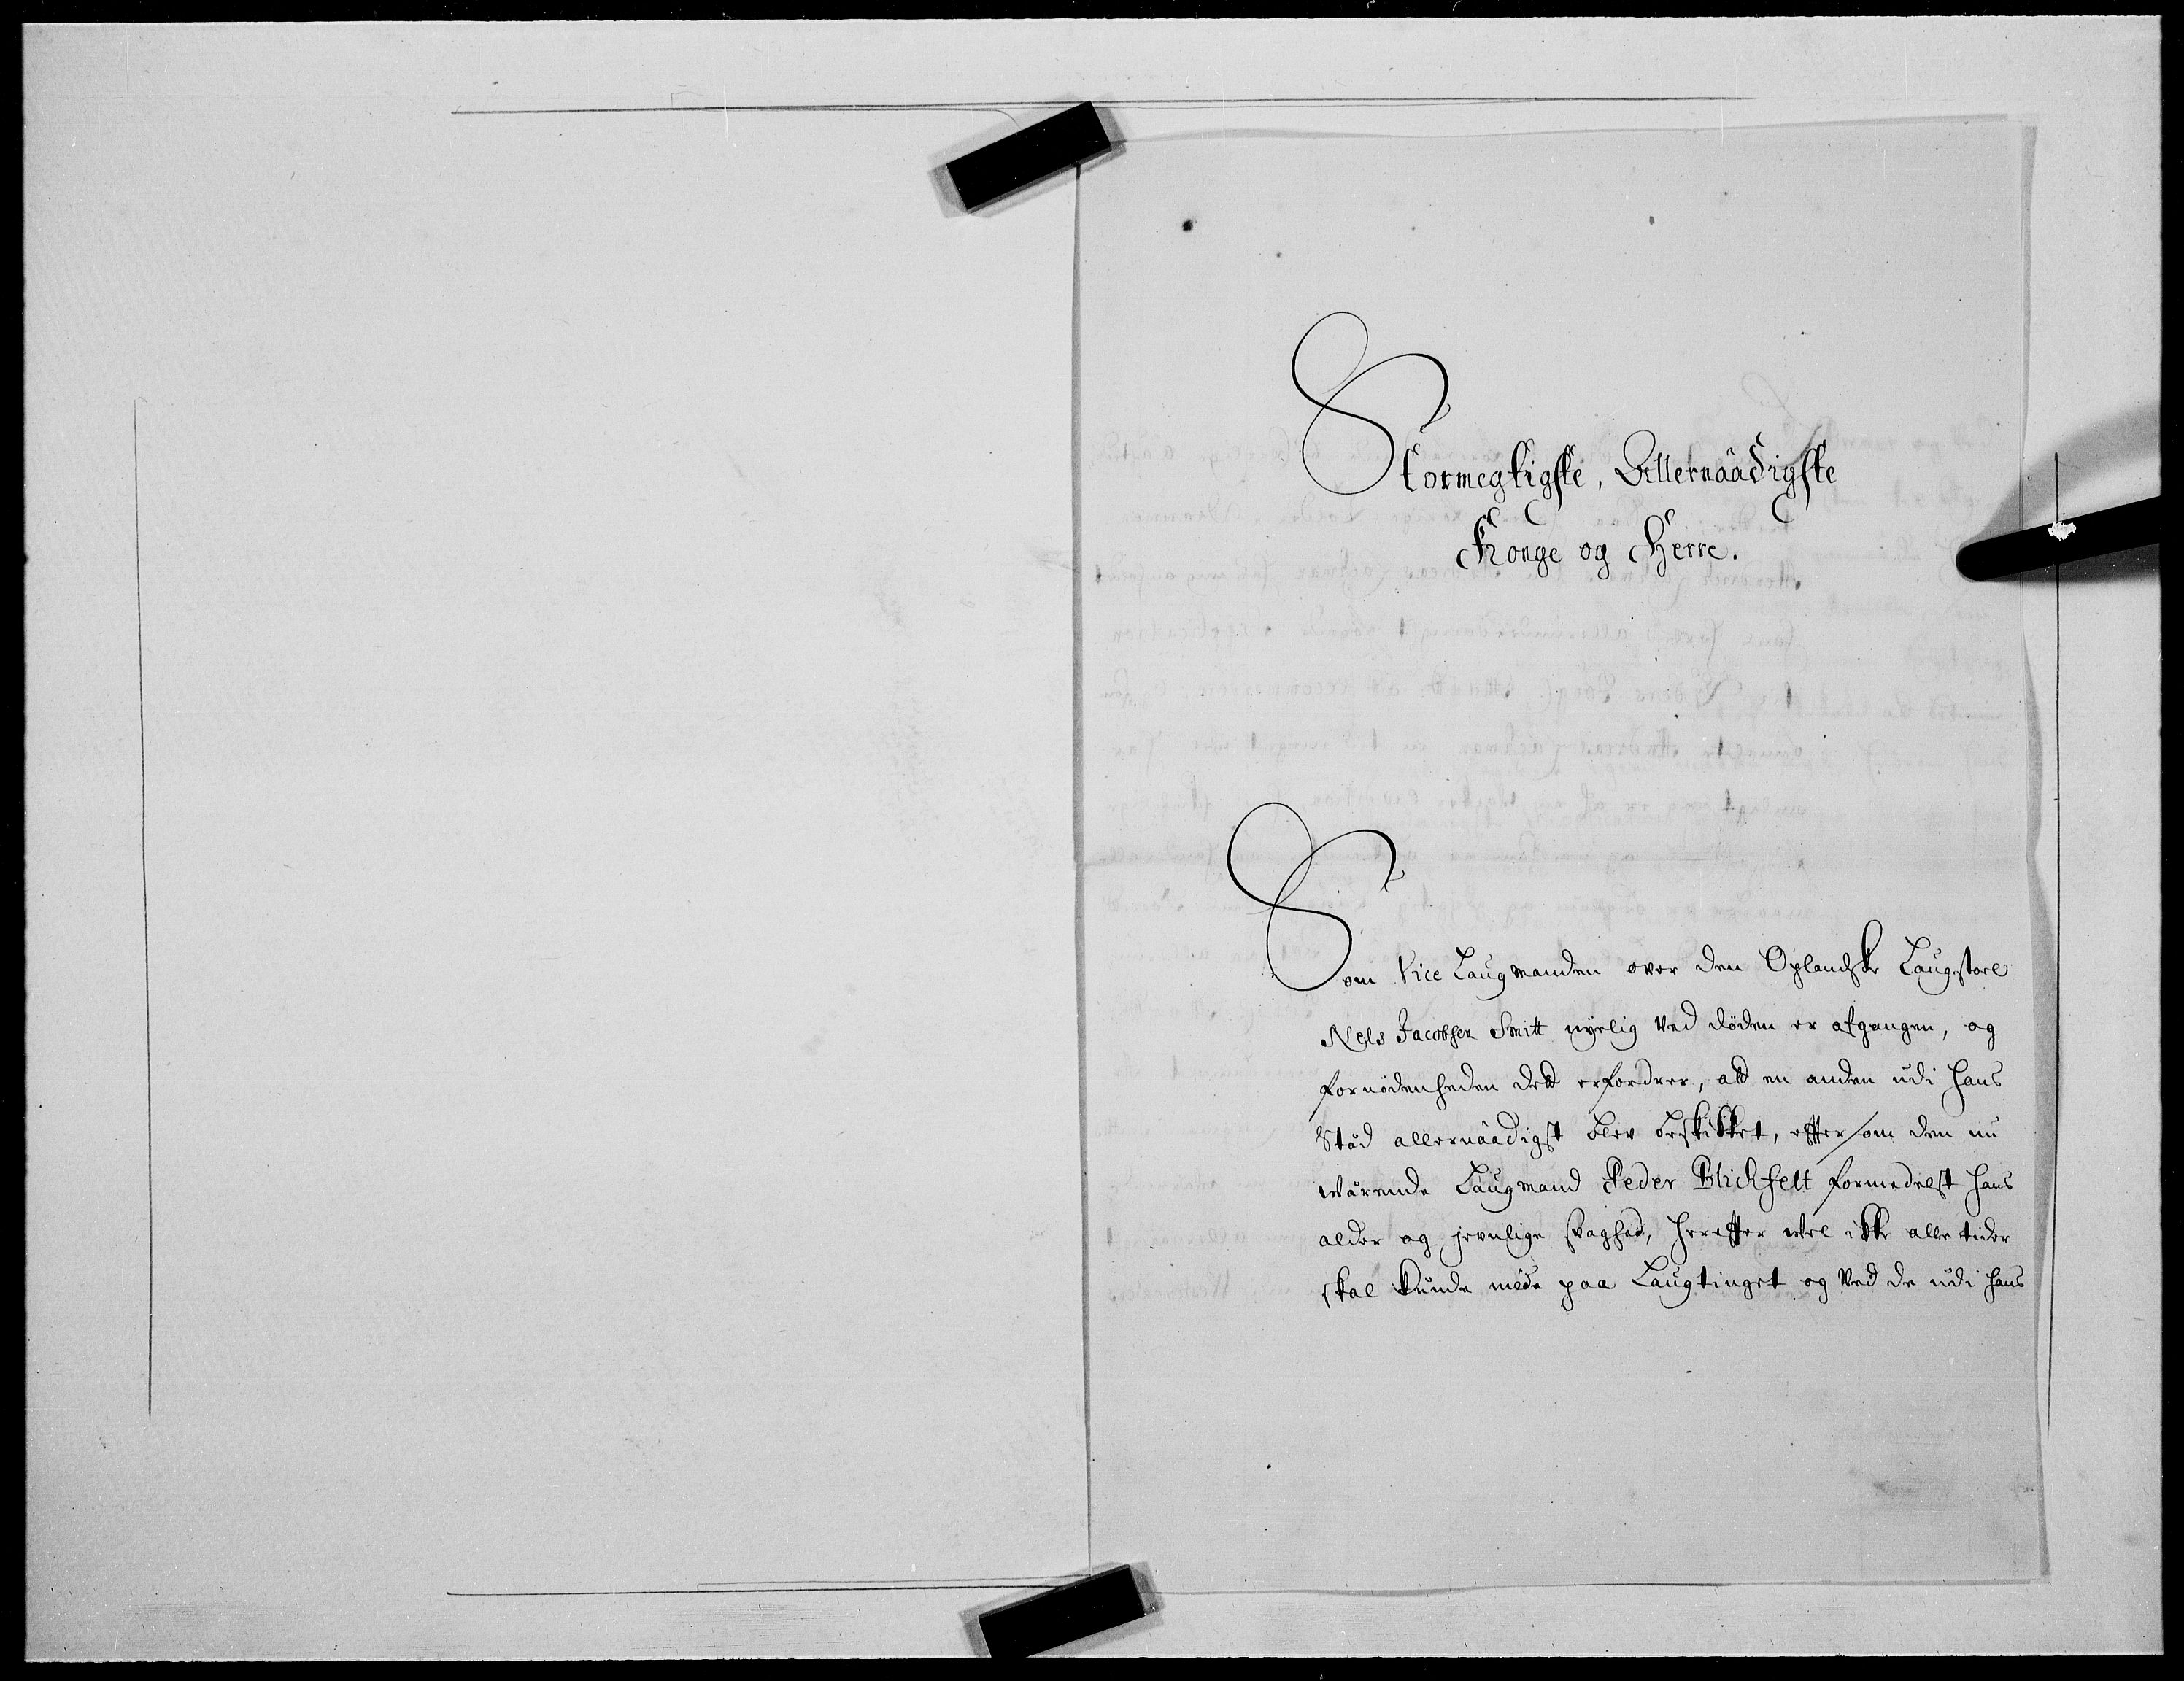 Stormegtigste, Allernåadigste
Konge og Herre.
Som Vice Laugmanden over den Oplandske Laugstoel
Niels Jacobsen Smitt nyelig ved døden er afgangen, og
fornödenheden dett erfordrer, att en anden udi hans
Stæd allernåadigst blev beskikket, effter som den nu
wærende Laugmand Peder Blichfelt formedelst hans
alder og jevnlige svaghed, hereffter wel ikke alle tider
skal kunde møde paa Laugtinget og ved de udi hans